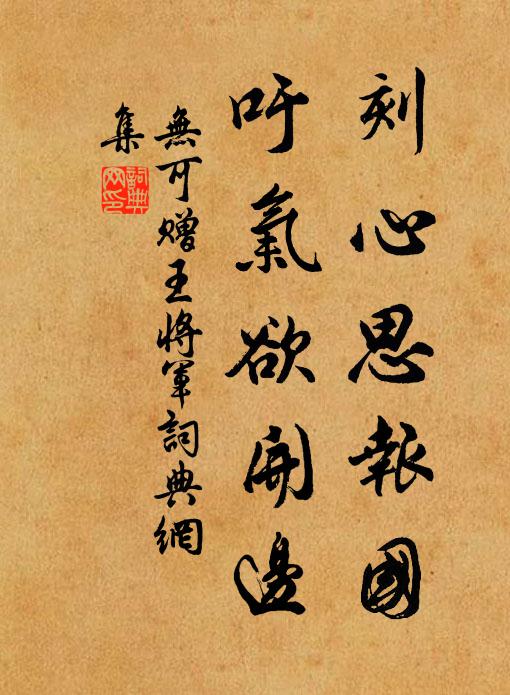 刻心思報國
吁氣欲開邊
無可贈王將軍詞典網
集
詞典
网印